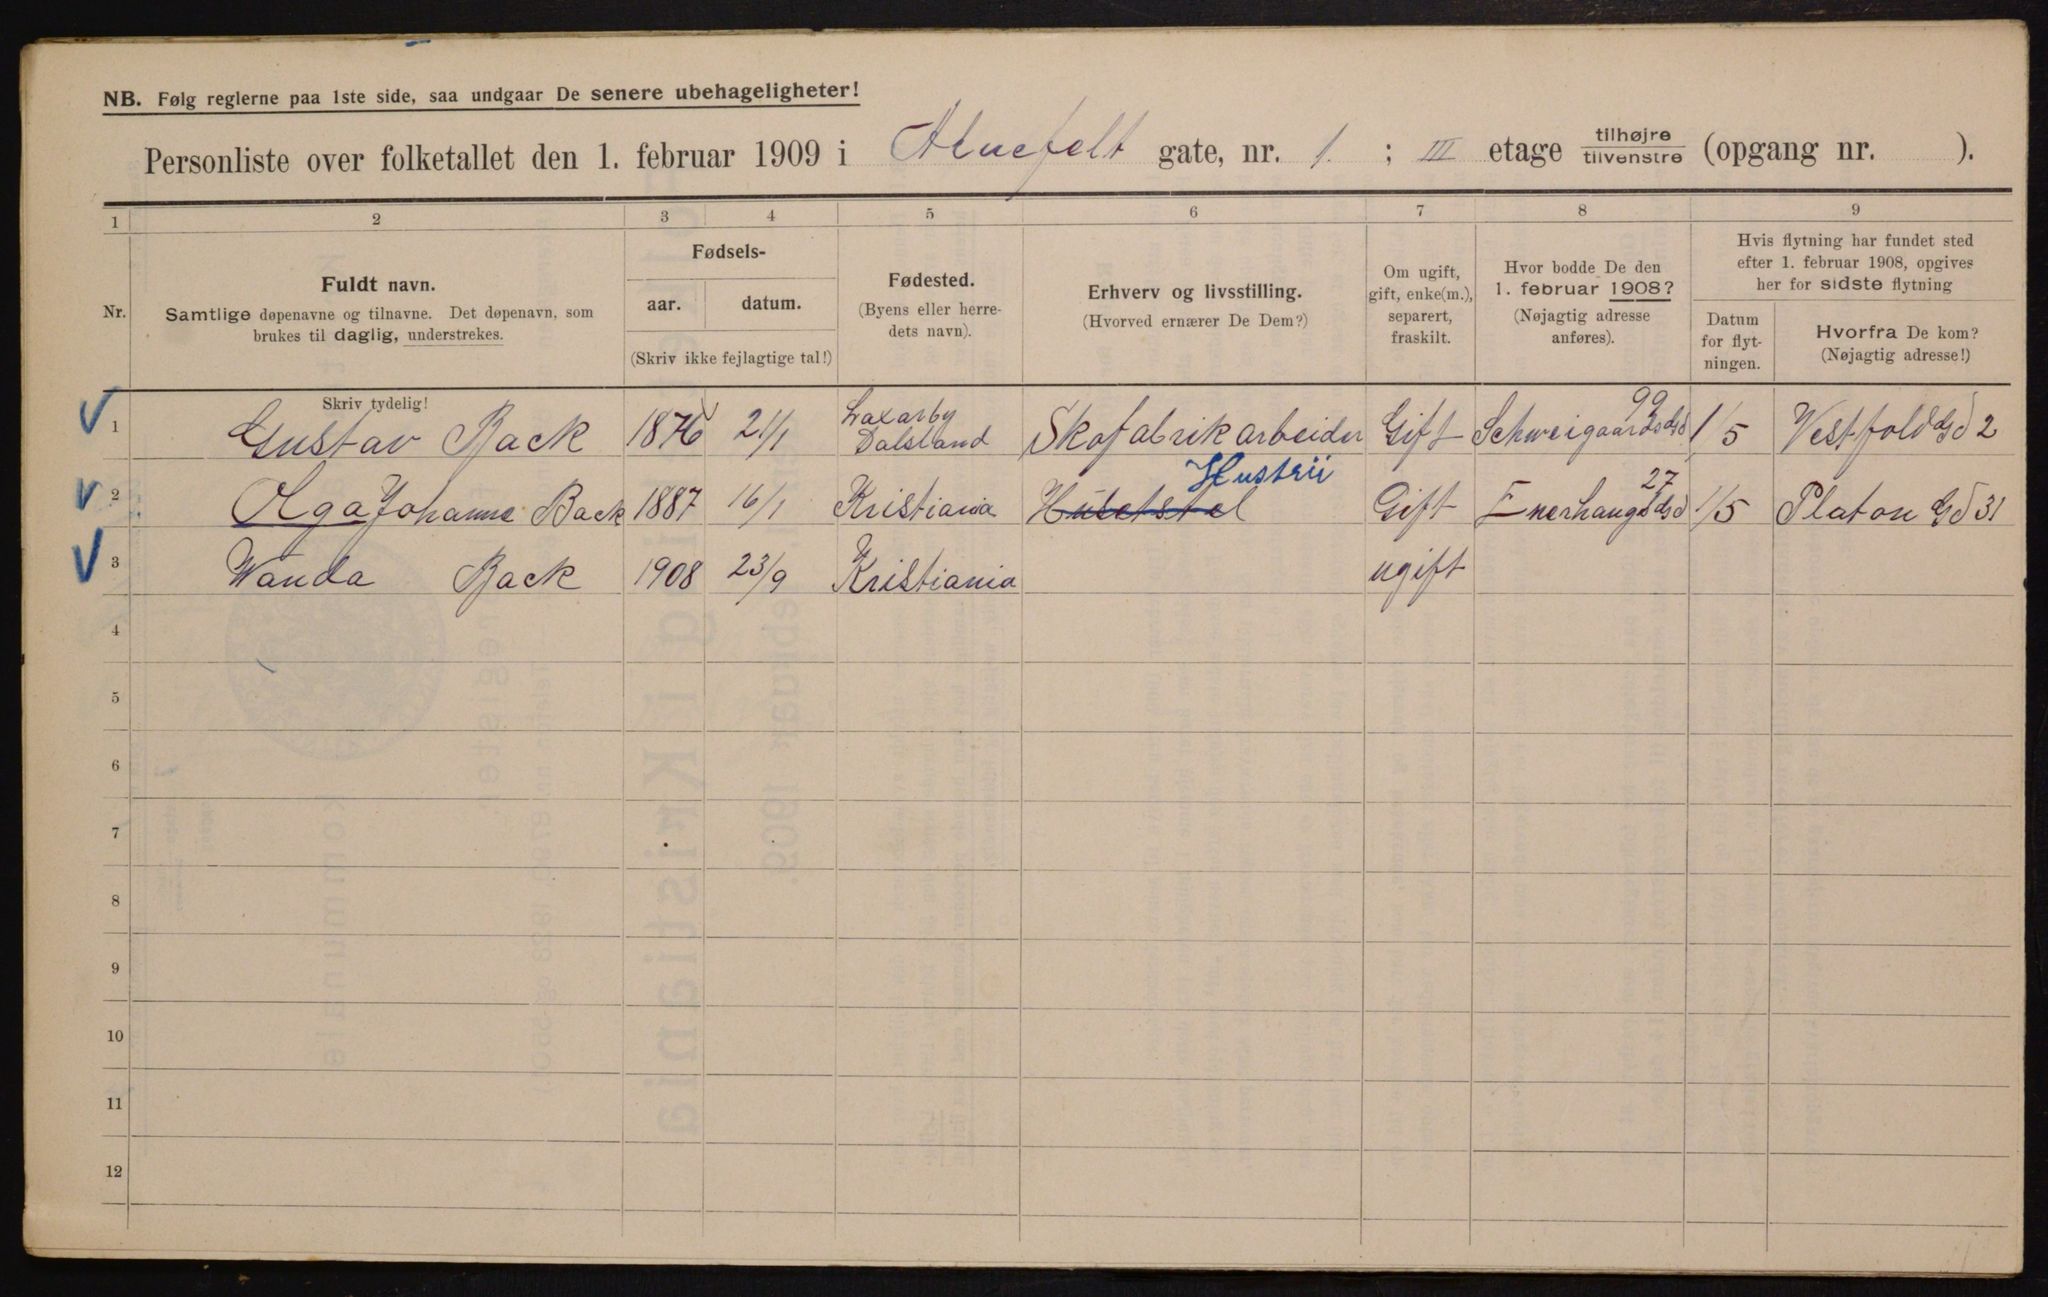 NB. Følg reglerne paa 1ste side, saa undgaar De senere ubehageligheter!
Personliste over folketallet den 1. februar 1909 i Aluefelt gate, nr. 1. ; III etage tilhøjre tilvenstre (opgang nr. ).
1 2 3 4 5 6 7 8 9
Nr.
Fuldt navn.
Samtlige døpenavne og tilnavne. Det døpenavn, som
brukes til daglig, understrekes.
Fødsels-
aar. datum.
(Skriv ikke fejlagtige tal!)
Fødested.
(Byens eller herre-
dets navn).
Erhverv og livsstilling.
(Hvorved ernærer De Dem?)
Om ugift,
gift, enke(m.),
separert,
fraskilt.
Hvor bodde De den
1. februar 1908?
(Nøjagtig adresse
anføres).
Hvis flytning har fundet sted
efter 1. februar 1908, opgives
her for sidste flytning
Datum
for flyt-
ningen.
Hvorfra De kom?
(Nøjagtig adresse!)
Skriv tydelig!
1 Gustav Back 1876 21/1 Laxarby Dalsland Skofabrikarbeider Gift Schweigaardsgd 99 1/5 Vestfold Gd 2
2 Olga Johanne Back 1887 16/1 Kristiania Husstel Hustru Gift Enerhaugsgd 27 1/5 Platon Gd 31
3 Wanda Back 1908 23/9 Kristiania ugift
4
5
6
7
8
9
10
11
12